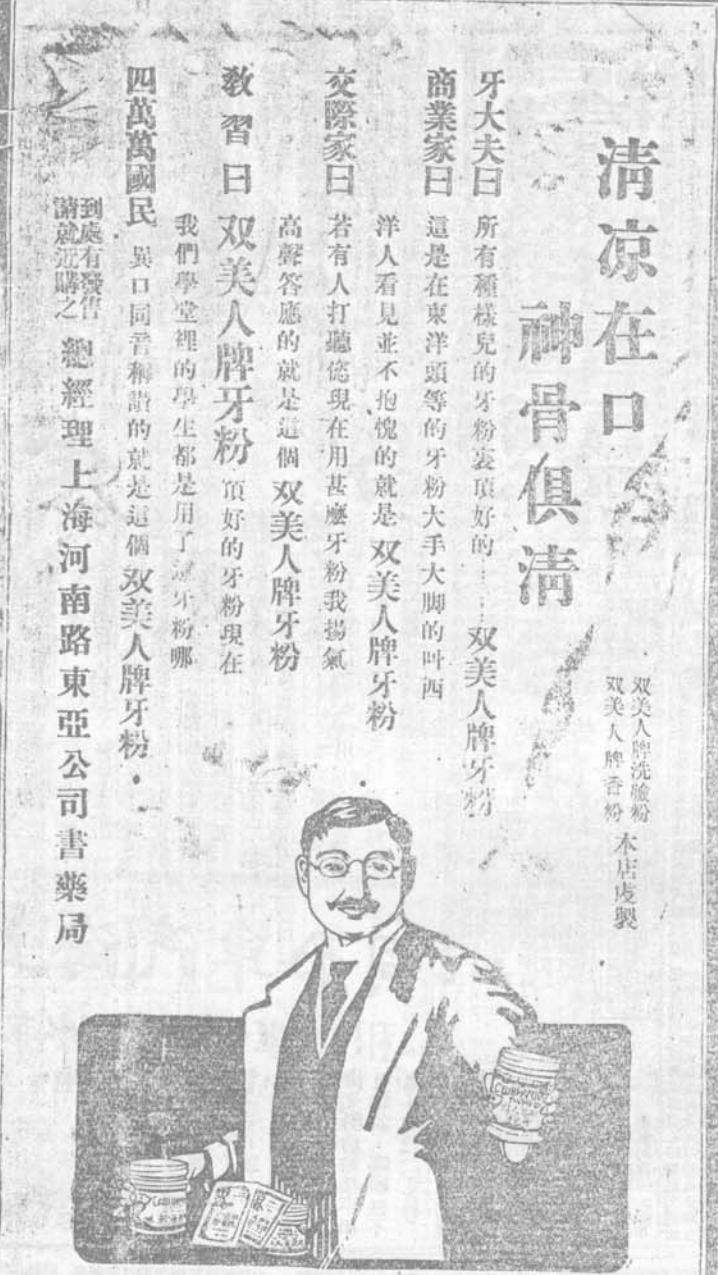 清凉在口
神骨俱清
双美人牌洗臉粉
双美人牌香粉
本店虔製
牙大夫曰 所有種樣兒的牙粉裏頂好的……双美人牌牙粉
商業家曰 這是在東洋頭等的牙粉大手大脚的叫西
洋人看見並不抱愧的就是双美人牌牙粉
交際家曰 若有人打聽您現在用甚麽牙粉我揚氣
高聲答應的就是這個双美人牌牙粉
教習曰 双美人牌牙粉頂好的牙粉現在
我們學堂裡的學生都是用了這牙粉哪
四萬萬國民 異口同音稱讚的就是這個双美人牌牙粉.
到處有發售
請就近購之
總經理上海河南路東亞公司書藥局